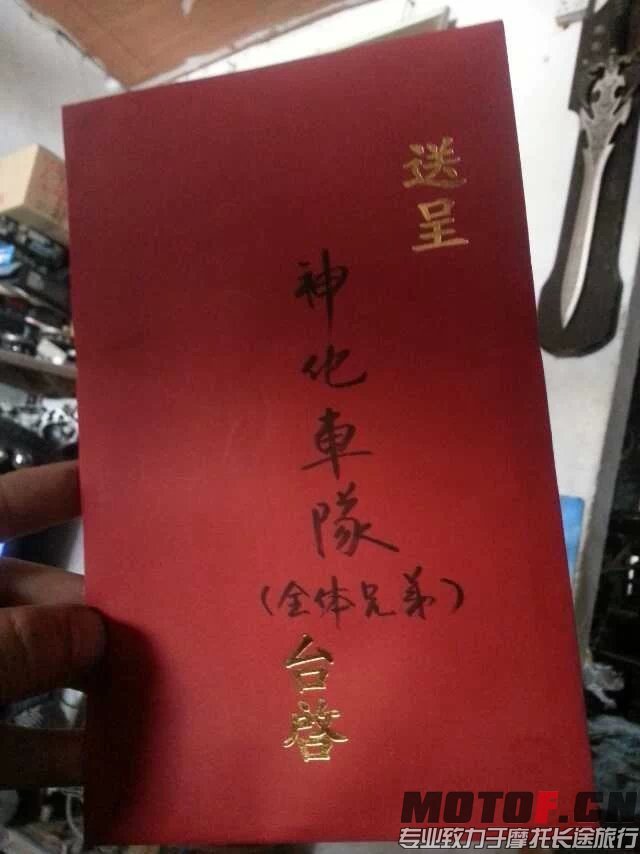 送呈
神化車隊
（全体兄弟）
台啓
MOTOF.CN
专业致力于摩托长途旅行